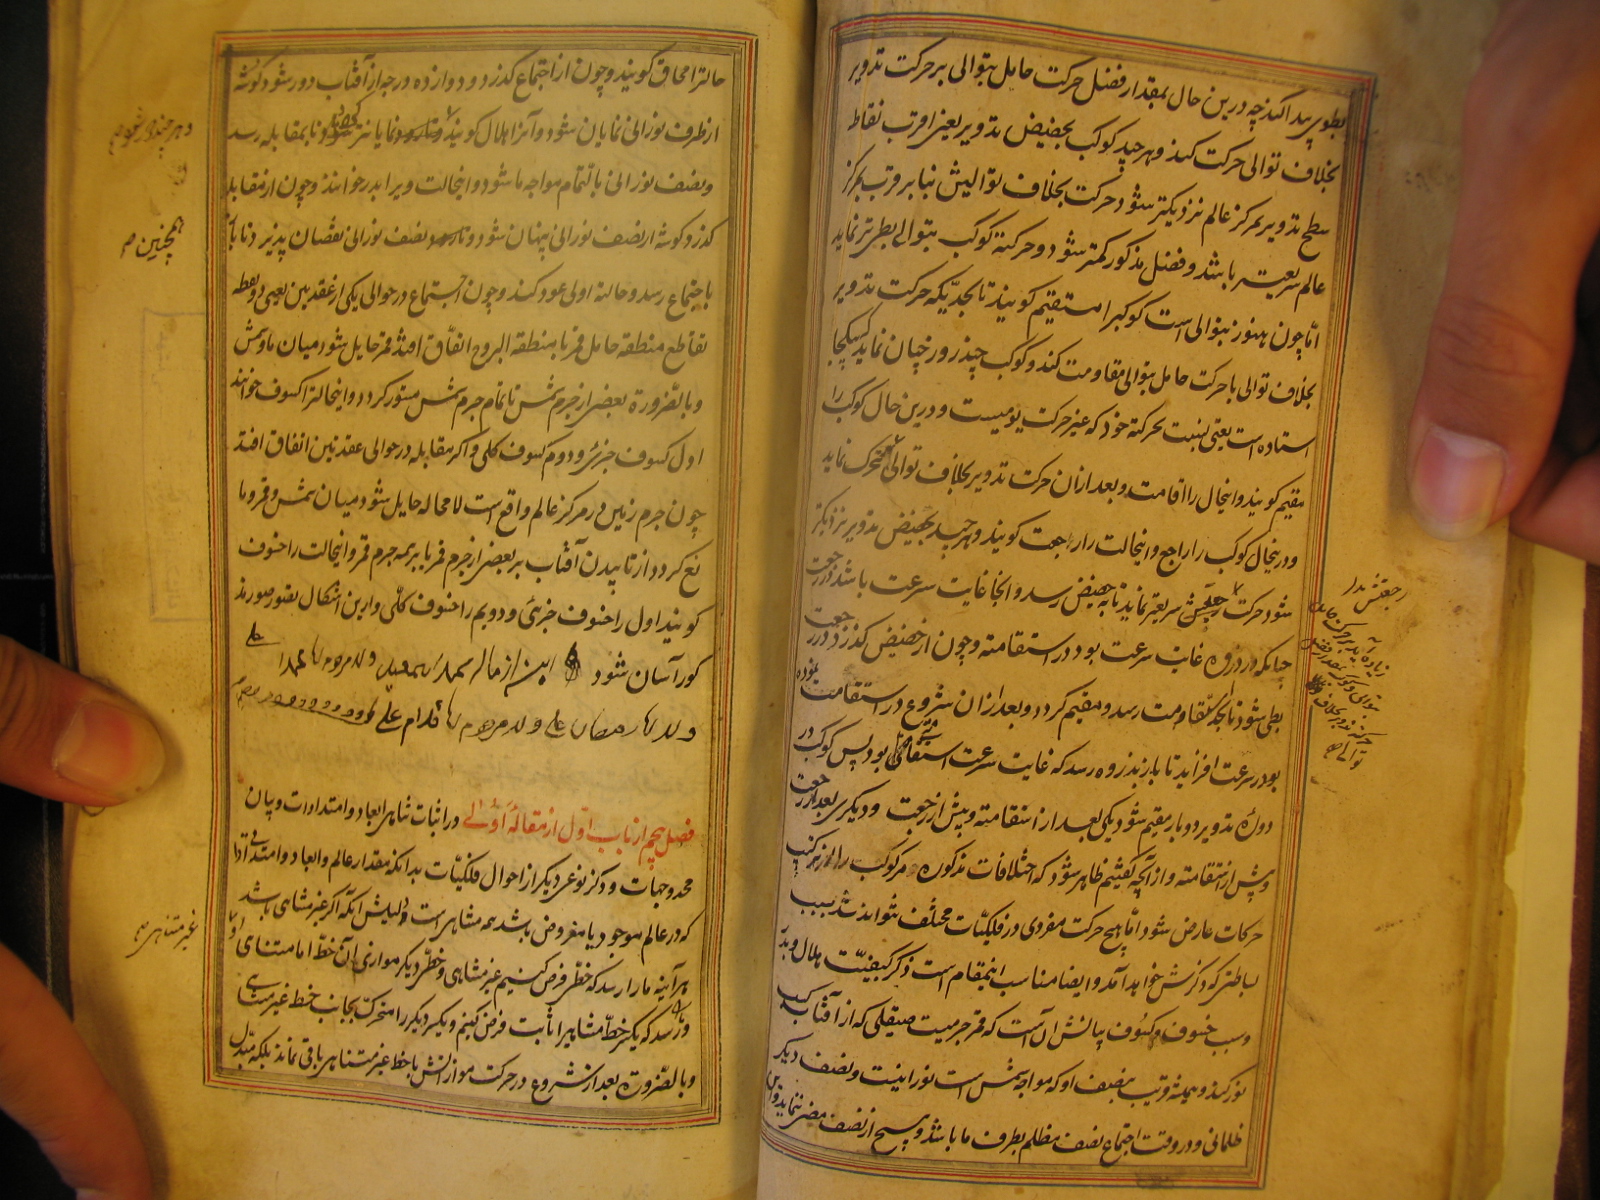 بطوی پیدا کند چه درین حال بمقدار فضل حرکت حامل بتوالی بر حرکت تدویر
بخلاف توالی حرکت کند و هر چند کوکب بحضیض تدویر یعنی اقرب نقاط
سطح تدویر بمرکز عالم نزدیکتر شود حرکت بخلاف توالیش بنا بر قرب بمرکز
عالم سریعتر باشد و فضل مذکور کمتر شود و حرکت کوکب بتوالی بطی تر نماید
اما چون هنوز بتوالی است کوکب را مستقیم کویند تا بحدیکه حرکت تدویر
بخلاف توالی با حرکت حامل بتوالی مقاومت کند و کوکب چند روز چنان نماید که یکجا
استاده است یعنی بنسبت بحرکت خود که غیر حرکت یومیست و درین حال کوکب را
مقیم کویند و اینحال را اقامت و بعد ازان حرکت تدویر بخلاف توالی متحرک نماید
و درینحال کوکب را راجع و اینحالت را رجعت کویند و هر چند بحضیض تدویر نزدیکتر
شود حرکت رجعتش سریعتر نماید تا بحضیض رسد و آنجا غایت سرعت باشد در رجعت
چنانکه در ذروه غایت سرعت بود در استقامت و چون از حضیض کذرد در رجعت
بطی شود تا بحد مقاومت رسد و مقیم کردد و بعد ازان شروع در استقامت نموده
بود در سرعت افزاید تا باز بذروه رسد که غایت سرعت استقامتی بود پس کوکب در
دوره تدویر دو بار مقیم شود یکی بعد از استقامت و پیش از رجعت و دیکری بعد از رجعت
و پیش از استقامت و از آنچه کفتیم ظاهر شود که اختلافات مذکوره مر کوکب را از ترکیب
حرکات عارض شود اما هیچ حرکت مفردی در فلکیات مختلف نتواند شد بسبب
بساطتی که ذکرش خواهد آمد و ایضا مناسب اینمقام است ذکر کیفیت هلال و بدر
و سبب خسوف و کسوف بیانش آن است که قمر جرمیست صیقلی که از آفتاب کسب
نور کند و همیشه قریب بنصف او که مواجه شمس است نورانیست و نصف دیکر
ظلمانی و در وقت اجتماع نصف مظلم بطرف ما باشد و هیچ از نصف مضی ننماید و این
رجعتش بدا
حالت را محاق کویند و چون از اجتماع کذرد و دوازده درجه از آفتاب دور شود کوشه
از طرف نورانی نمایان شود و آنرا هلال کویند نمایانتر کردد تا بمقابله رسد
و نصف نورانی بالتمام مواجه ما شود و اینحالت ویرا بدر خوانند و چون از مقابله
کذرد کوشه از نصف نورانی پنهان شود و نصف نورانی نقصان پذیرد تا باز
باجتماع رسد و حالت اولی عود کند و چون اجتماع در حوالی یکی از عقدتین یعنی دو نقطه
تقاطع منطقه حامل قمر با منطقة البروج اتفاق افتد قمر حایل شود میان ما و شمس
و بالضرورة بعضی از جرم شمس یا تمام جرم شمس مستور کردد و اینحالت را کسوف خوانند
اول کسوف جزئی و دوم کسوف کلی و اکر مقابله در حوالی عقدتین اتفاق افتد
چون جرم زمین در مرکز عالم واقع است لامحاله حایل شود میان شمس و قمر و ما
نع کردد از تابیدن آفتاب بر بعضی از جرم قمر یا بر همه جرم قمر و اینحالت را خسوف
کویند اول را خسوف جزئی و دویم را خسوف کلی و ازین اشکال تصور صور مذ
کور آسان شود
فصل پنجم از باب اول از مقاله اولی در اثبات تناهی ابعاد و امتدادات و بیان
محدد جهات و ذکر نوعی دیکر از احوال فلکیات بدانکه مقدار عالم و ابعاد و امتدادات
که در عالم موجود یا مفروض باشد همه متناهی است و دلیلش آنکه اکر غیر متناهی باشد
هر آینه ما را رسد که خطی فرض کنیم غیر متناهی و خطی دیکر موازی آن خط اما متناهی
و رسد که یک طرف خط متناهی را ثابت فرض کنیم و یکسر دیکر را متحرک بجانب خط غیر متناهی
و بالضرورة بعد از شروع در حرکت موازاتش با خط غیر متناهی باقی نماند بلکه مبدل
همچنین صح
غیر متناهی صح